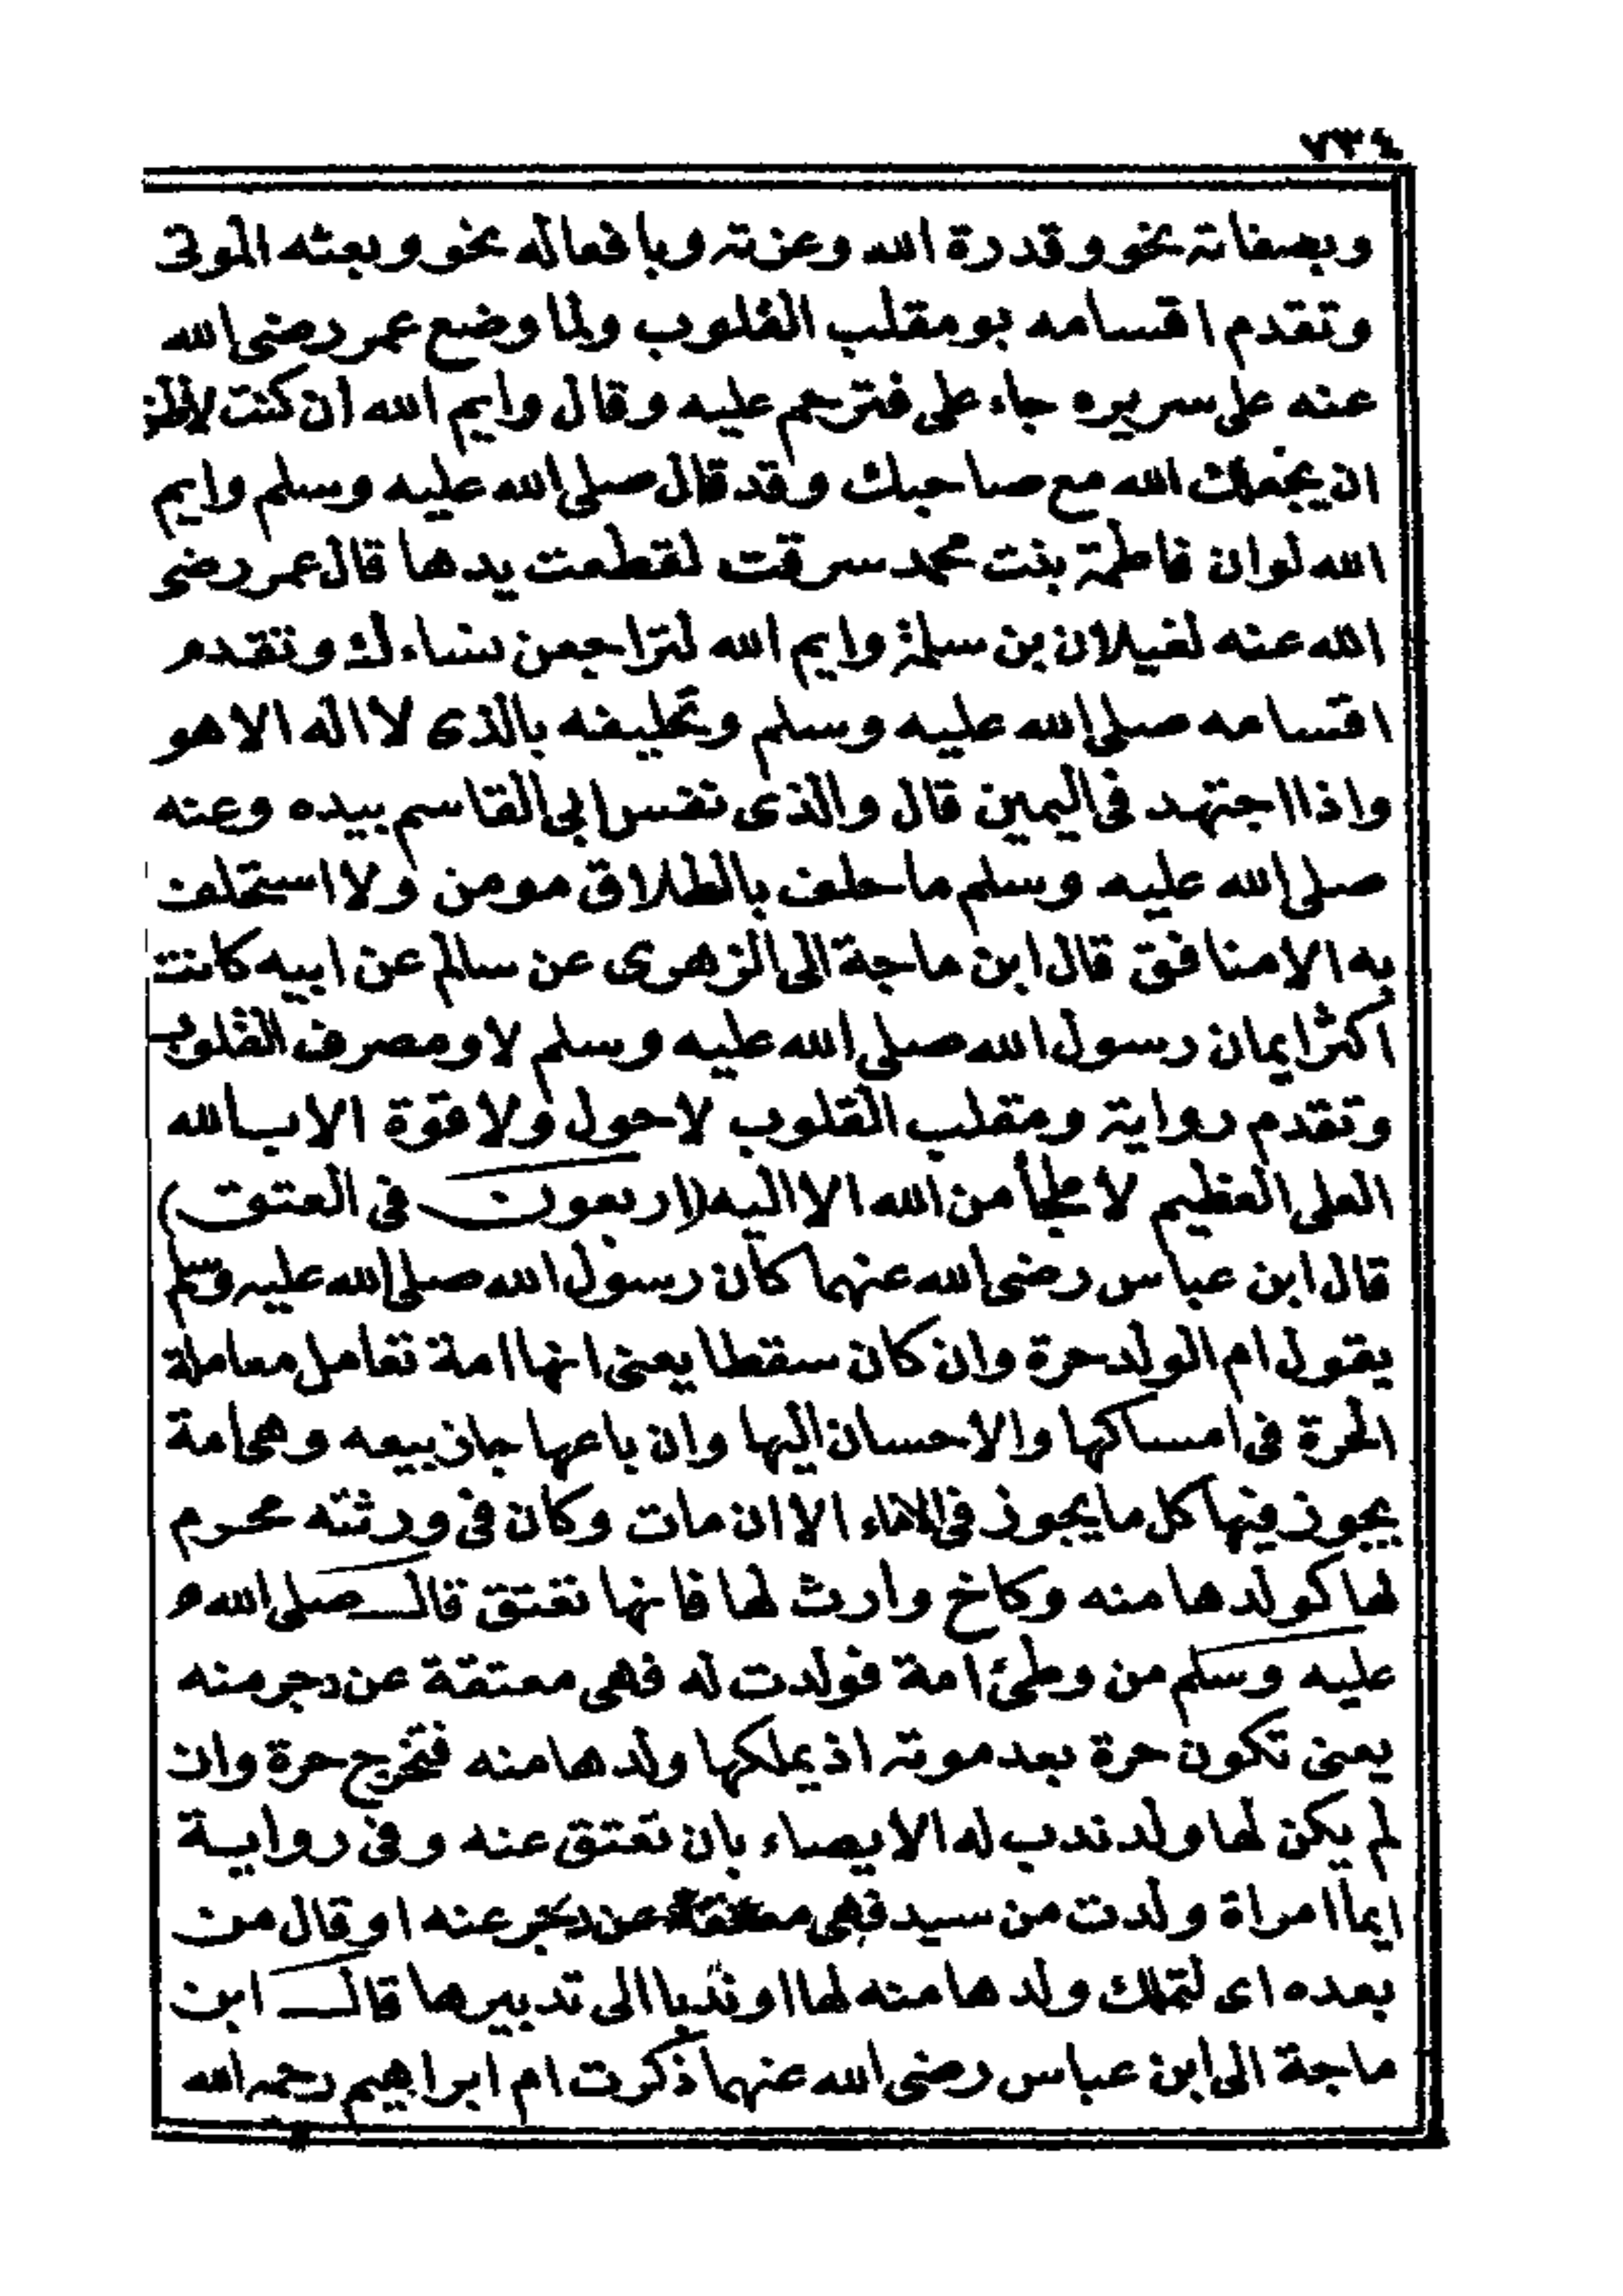 ٧٣٤
وبصفاته نحو وقدرة الله وعزته وبافعاله نحو وبعثه الموتى
وتقدم اقسامه بومقلب القلوب ولما وضع عمر رضى الله
عنه على سريره جاء على فترحم عليه وقال وايم الله ان كنت لاظن
ان يجعلك الله مع صاحبك وقد قال صلى الله عليه وسلم وايم
الله لوان فاطمة بنت محمد سرقت لقطعت يدها قال عمر رضى
الله عنه لغيلان بن سلمة وايم الله لتراجعن نساءك وتقدم
اقسامه صلى الله عليه وسلم وتحليفه بالذى لا اله الا هو
واذا اجتهد فى اليمين قال والذى نفس ابى القاسم بيده وعنه
صلى الله عليه وسلم ما حلف بالطلاق مومن ولا استحلف
به الا منافق قال ابن ماجة الى الزهرى عن سالم عن ابيه كانت
اكثر ايمان رسول الله صلى الله عليه وسلم لا ومصرف القلوب
وتقدم رواية ومقلب القلوب لا حول ولا قوة الا بالله
العلى العظيم لا ملجأ من الله الا اليه (اربعون فى العتق)
قال ابن عباس رضى الله عنهما كان رسول الله صلى الله عليه وسلم
يقول ام الولد حرة وان كان سقطا يعنى انها امة تعامل معاملة
الحرة فى امساكها والاحسان اليها وان باعها جاز بيعه وهى امة
يجوز فيها كل ما يجوز فى الاماء الا ان مات وكان فى ورثته محرم
لها كولدها منه وكاخ وارث لها فانها تعتق قال صلى الله
عليه وسلم من وطئ امة فولدت له فهى معتقة عن دبر منه
يعنى تكون حرة بعد موته اذ يملكها ولدها منه فتخرج حرة وان
لم يكن لها ولد ندب له الايصاء بان تعتق عنه وفى رواية
ايما امراة ولدت من سيد فهى معتقة عن دبر عنه او قال من
بعده اى لتملك ولدها منه لها او ندبا الى تدبيرها قال ابن
ماجة الى ابن عباس رضى الله عنهما ذكرت ام ابراهيم رحمه الله